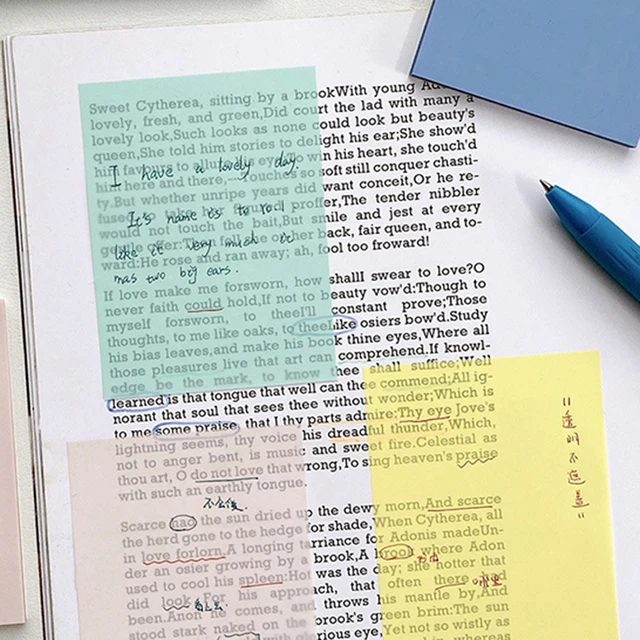 Sweet Cytherea, sitting by a brookWith young Ad
lovely, fresh, and green,Did court the lad with many a
lovely look,Such looks as none could look but beauty's
queen,She told him stories to delight his ear;She show'd
him favors to allure his eye;To win his heart, she touch'd
him here and there,—Touches so soft still conquer chasti-
ty.But whether unripe years did want conceit,Or he re-
fused to take her figured proffer,The tender nibbler
would not touch the bait,But smile and jest at every
gentle offer:Then fell she on her back, fair queen, and to-
ward:He rose and ran away; ah, fool too froward!
I have a lovely day.
It's name is to roll
like it very much it
mas two big ears.
If love make me forsworn, how shallI swear to love?O
never faith could hold,If not to beauty vow'd:Though to
myself forsworn, to thee I'll constant prove;Those
thoughts, to me like oaks, to theeLike osiers bow'd.Study
his bias leaves,and make his book thine eyes,Where all
those pleasures live that art can comprehend.If knowl-
edge be the mark, to know thee shall suffice;Well
learned is that tongue that well can thee commend;All ig-
norant that soul that sees thee without wonder;Which is
to me some praise, that I thy parts admire:Thy eye Jove's
lightning seems, thy voice his dreadful thunder,Which,
not to anger bent, is music and sweet fire.Celestial as
thou art, O do not love that wrong,To sing heaven's praise
with such an earthly tongue.
"透明不遮盖"
Scarce had the sun dried up the dewy morn,And scarce
the herd gone to the hedge for shade,When Cytherea, all
in love forlorn,A longing tarriance for Adonis madeUn-
der an osier growing by a brook,A brook where Adon
used to cool his spleen:Hot was the day; she hotter that
did look For his approach, that often there had
been.Anon he comes, and throws his mantle by,And
stood stark naked on the brook's green brim:The sun
glorious eye,Yet not so wistly as